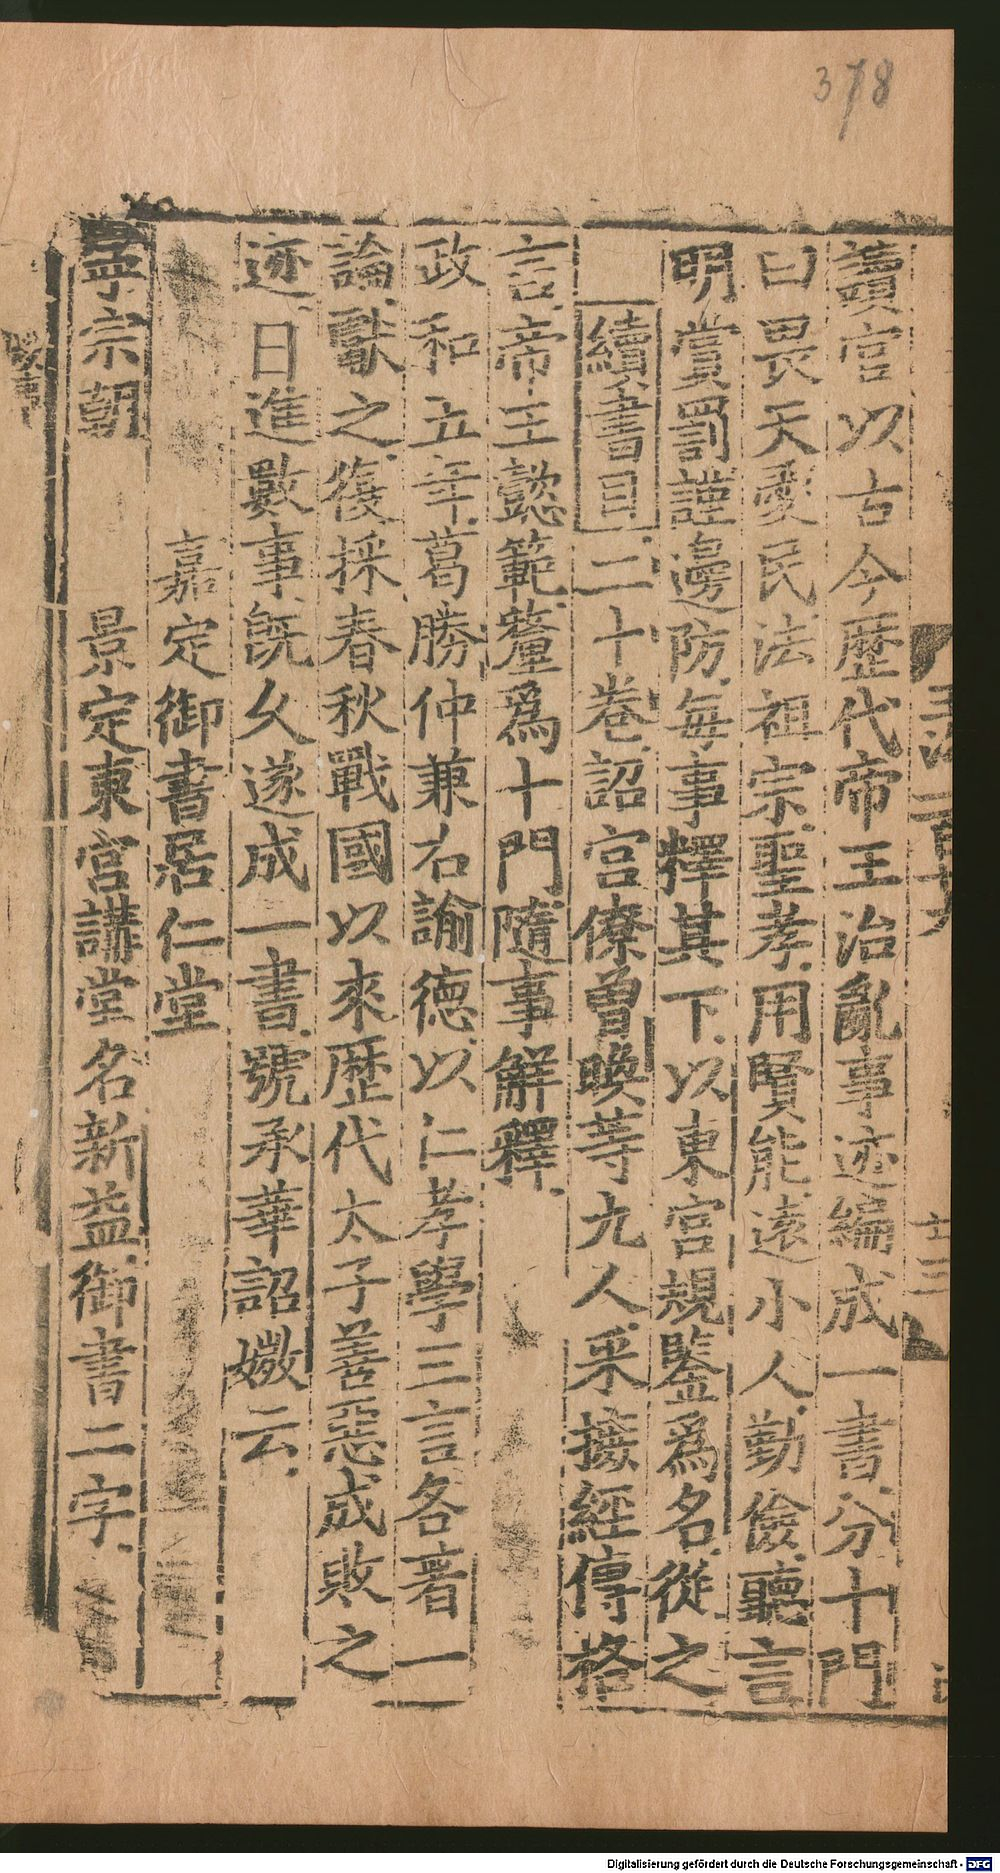 378
讀官以古今歷代帝王治亂事迹編成一書分十門
曰畏天愛民法祖宗聖孝用賢能遠小人勤儉聽言
明賞罰謹邊防每事釋其下以東宮規鑒爲名從之
續書目二十卷詔宫僚曾喚等九人采摭經傳格
言帝王懿範釐爲十門隨事解釋
政和五年葛勝仲兼右諭德以仁孝學三言各著一
論獻之復採春秋戰國以來歷代太子善惡成敗之
迹日進數事旣久遂成一書號承華詔媺云
嘉定御書居仁堂
寧宗朝 景定東宮講堂名新益御書二字
Digitalisierung gefördert durch die Deutsche Forschungsgemeinschaft - DFG